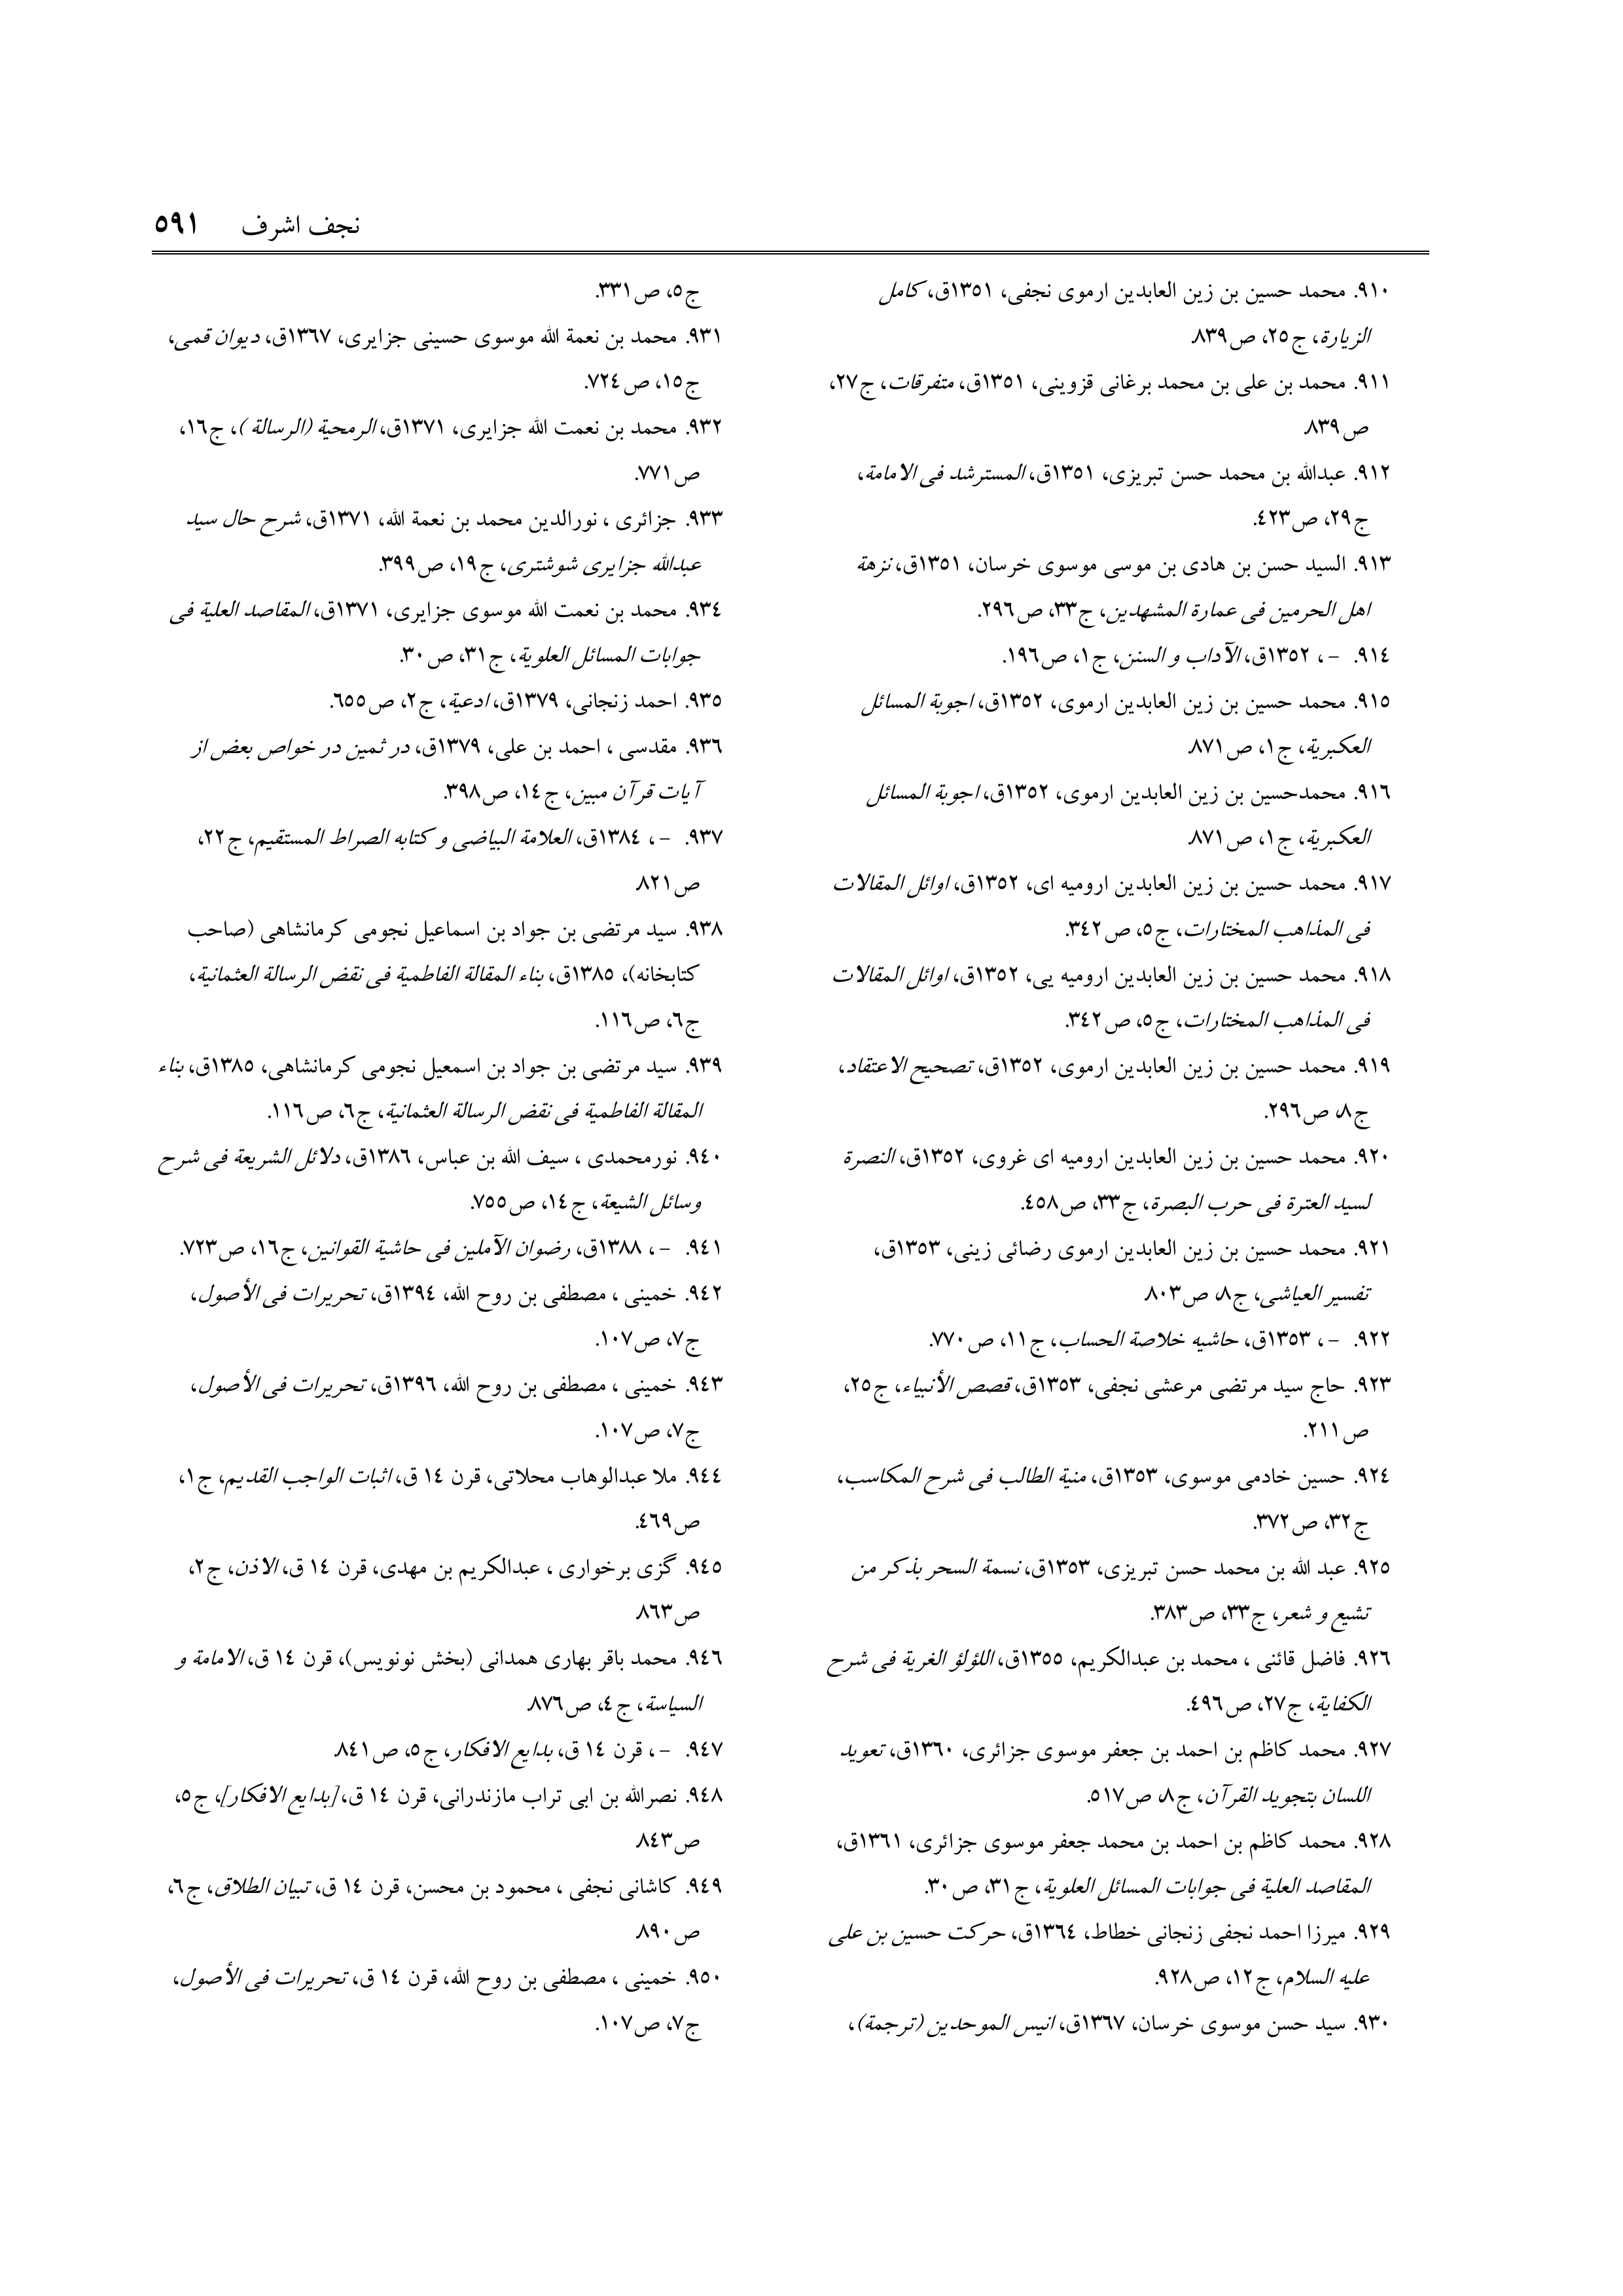 نجف اشرف ٥٩١
٩١٠. محمد حسین بن زین العابدین ارموی نجفی، ١٣٥١ق، کامل
الزیارة، ج٢٥، ص٨٣٩.
٩١١. محمد بن علی بن محمد برغانی قزوینی، ١٣٥١ق، متفرقات، ج٢٧،
ص٨٣٩.
٩١٢. عبدالله بن محمد حسن تبریزی، ١٣٥١ق، المسترشد فی الامامة،
ج٢٩، ص٤٢٣.
٩١٣. السید حسن بن هادی بن موسی موسوی خرسان، ١٣٥١ق، نزهة
اهل الحرمین فی عمارة المشهدین، ج٣٣، ص٢٩٦.
٩١٤. -، ١٣٥٢ق، الآداب و السنن، ج١، ص١٩٦.
٩١٥. محمد حسین بن زین العابدین ارموی، ١٣٥٢ق، اجوبة المسائل
العکبریة، ج١، ص٨٧١.
٩١٦. محمدحسین بن زین العابدین ارموی، ١٣٥٢ق، اجوبة المسائل
العکبریة، ج١، ص٨٧١.
٩١٧. محمد حسین بن زین العابدین ارومیه ای، ١٣٥٢ق، اوائل المقالات
فی المذاهب المختارات، ج٥، ص٣٤٢.
٩١٨. محمد حسین بن زین العابدین ارومیه یی، ١٣٥٢ق، اوائل المقالات
فی المذاهب المختارات، ج٥، ص٣٤٢.
٩١٩. محمد حسین بن زین العابدین ارموی، ١٣٥٢ق، تصحیح الاعتقاد،
ج٨، ص٢٩٦.
٩٢٠. محمد حسین بن زین العابدین ارومیه ای غروی، ١٣٥٢ق، النصرة
لسید العترة فی حرب البصرة، ج٣٣، ص٤٥٨.
٩٢١. محمد حسین بن زین العابدین ارموی رضائی زینی، ١٣٥٣ق،
تفسیر العیاشی، ج٨، ص٨٠٣.
٩٢٢. -، ١٣٥٣ق، حاشیه خلاصة الحساب، ج١١، ص٧٧٠.
٩٢٣. حاج سید مرتضی مرعشی نجفی، ١٣٥٣ق، قصص الأنبیاء، ج٢٥،
ص٢١١.
٩٢٤. حسین خادمی موسوی، ١٣٥٣ق، منیة الطالب فی شرح المکاسب،
ج٣٢، ص٣٧٢.
٩٢٥. عبد الله بن محمد حسن تبریزی، ١٣٥٣ق، نسمة السحر بذکر من
تشیع و شعر، ج٣٣، ص٣٨٣.
٩٢٦. فاضل قائنی ، محمد بن عبدالکریم، ١٣٥٥ق، اللؤلؤ الغریة فی شرح
الکفایة، ج٢٧، ص٤٩٦.
٩٢٧. محمد کاظم بن احمد بن جعفر موسوی جزائری، ١٣٦٠ق، تعوید
اللسان بتجوید القرآن، ج٨، ص٥١٧.
٩٢٨. محمد کاظم بن احمد بن محمد جعفر موسوی جزائری، ١٣٦١ق،
المقاصد العلیة فی جوابات المسائل العلویة، ج٣١، ص٣٠.
٩٢٩. میرزا احمد نجفی زنجانی خطاط، ١٣٦٤ق، حرکت حسین بن علی
علیه السلام، ج١٢، ص٩٢٨.
٩٣٠. سید حسن موسوی خرسان، ١٣٦٧ق، انیس الموحدین (ترجمة)،
ج٥، ص٣٣١.
٩٣١. محمد بن نعمة الله موسوی حسینی جزایری، ١٣٦٧ق، دیوان قمی،
ج١٥، ص٧٢٤.
٩٣٢. محمد بن نعمت الله جزایری، ١٣٧١ق، الرمحیة (الرسالة )، ج١٦،
ص٧٧١.
٩٣٣. جزائری ، نورالدین محمد بن نعمة الله، ١٣٧١ق، شرح حال سید
عبدالله جزایری شوشتری، ج١٩، ص٣٩٩.
٩٣٤. محمد بن نعمت الله موسوی جزایری، ١٣٧١ق، المقاصد العلیة فی
جوابات المسائل العلویة، ج٣١، ص٣٠.
٩٣٥. احمد زنجانی، ١٣٧٩ق، ادعیة، ج٢، ص٦٥٥.
٩٣٦. مقدسی ، احمد بن علی، ١٣٧٩ق، در ثمین در خواص بعض از
آیات قرآن مبین، ج١٤، ص٣٩٨.
٩٣٧. -، ١٣٨٤ق، العلامة البیاضی و کتابه الصراط المستقیم، ج٢٢،
ص٨٢١.
٩٣٨. سید مرتضی بن جواد بن اسماعیل نجومی کرمانشاهی (صاحب
کتابخانه)، ١٣٨٥ق، بناء المقالة الفاطمیة فی نقض الرسالة العثمانیة،
ج٦، ص١١٦.
٩٣٩. سید مرتضی بن جواد بن اسمعیل نجومی کرمانشاهی، ١٣٨٥ق، بناء
المقالة الفاطمیة فی نقض الرسالة العثمانیة، ج٦، ص١١٦.
٩٤٠. نورمحمدی ، سیف الله بن عباس، ١٣٨٦ق، دلائل الشریعة فی شرح
وسائل الشیعة، ج١٤، ص٧٥٥.
٩٤١. -، ١٣٨٨ق، رضوان الآملین فی حاشیة القوانین، ج١٦، ص٧٢٣.
٩٤٢. خمینی ، مصطفی بن روح الله، ١٣٩٤ق، تحریرات فی الأصول،
ج٧، ص١٠٧.
٩٤٣. خمینی ، مصطفی بن روح الله، ١٣٩٦ق، تحریرات فی الأصول،
ج٧، ص١٠٧.
٩٤٤. ملا عبدالوهاب محلاتی، قرن ١٤ ق، اثبات الواجب القدیم، ج١،
ص٤٦٩.
٩٤٥. گزی برخواری ، عبدالکریم بن مهدی، قرن ١٤ ق، الاذن، ج٢،
ص٨٦٣.
٩٤٦. محمد باقر بهاری همدانی (بخش نونویس)، قرن ١٤ ق، الامامة و
السیاسة، ج٤، ص٨٧٦.
٩٤٧. -، قرن ١٤ ق، بدایع الافکار، ج٥، ص٨٤١.
٩٤٨. نصرالله بن ابی تراب مازندرانی، قرن ١٤ ق، [بدایع الافکار]، ج٥،
ص٨٤٣.
٩٤٩. کاشانی نجفی ، محمود بن محسن، قرن ١٤ ق، تبیان الطلاق، ج٦،
ص٨٩٠.
٩٥٠. خمینی ، مصطفی بن روح الله، قرن ١٤ ق، تحریرات فی الأصول،
ج٧، ص١٠٧.